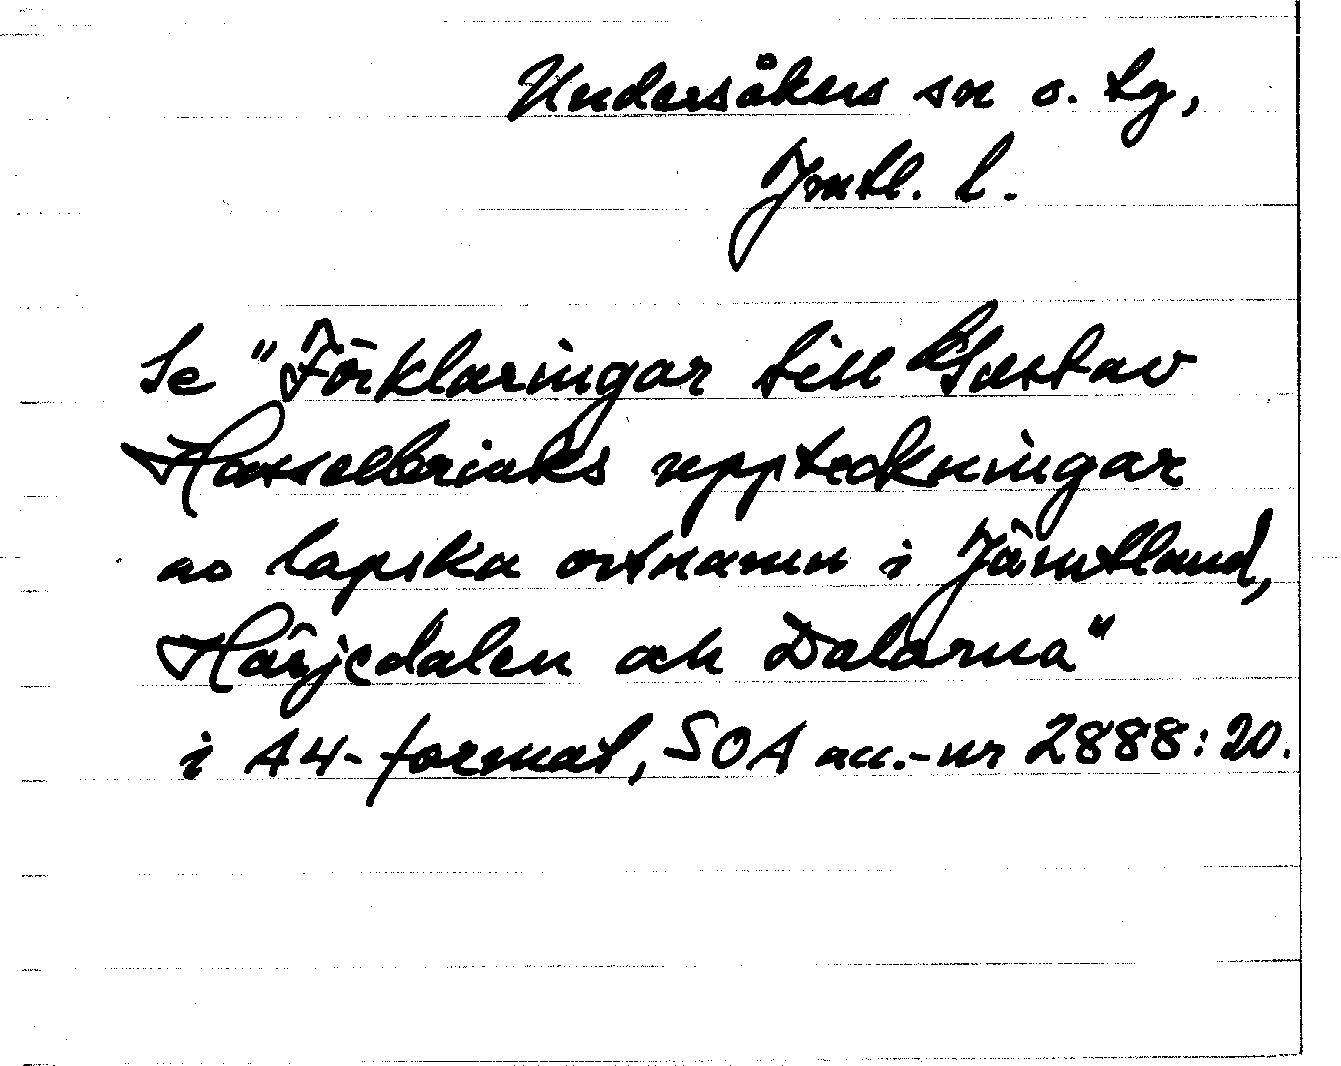 Undersåkers sn o. tg,
Jmtl. l.
Se "Förklaringar till Gustav
Hasselbrinks uppteckningar
av lapska ortnamn i Jämtland,
Härjedalen och Dalarna"
i A4-format, SOA acc.-nr 2888:20.